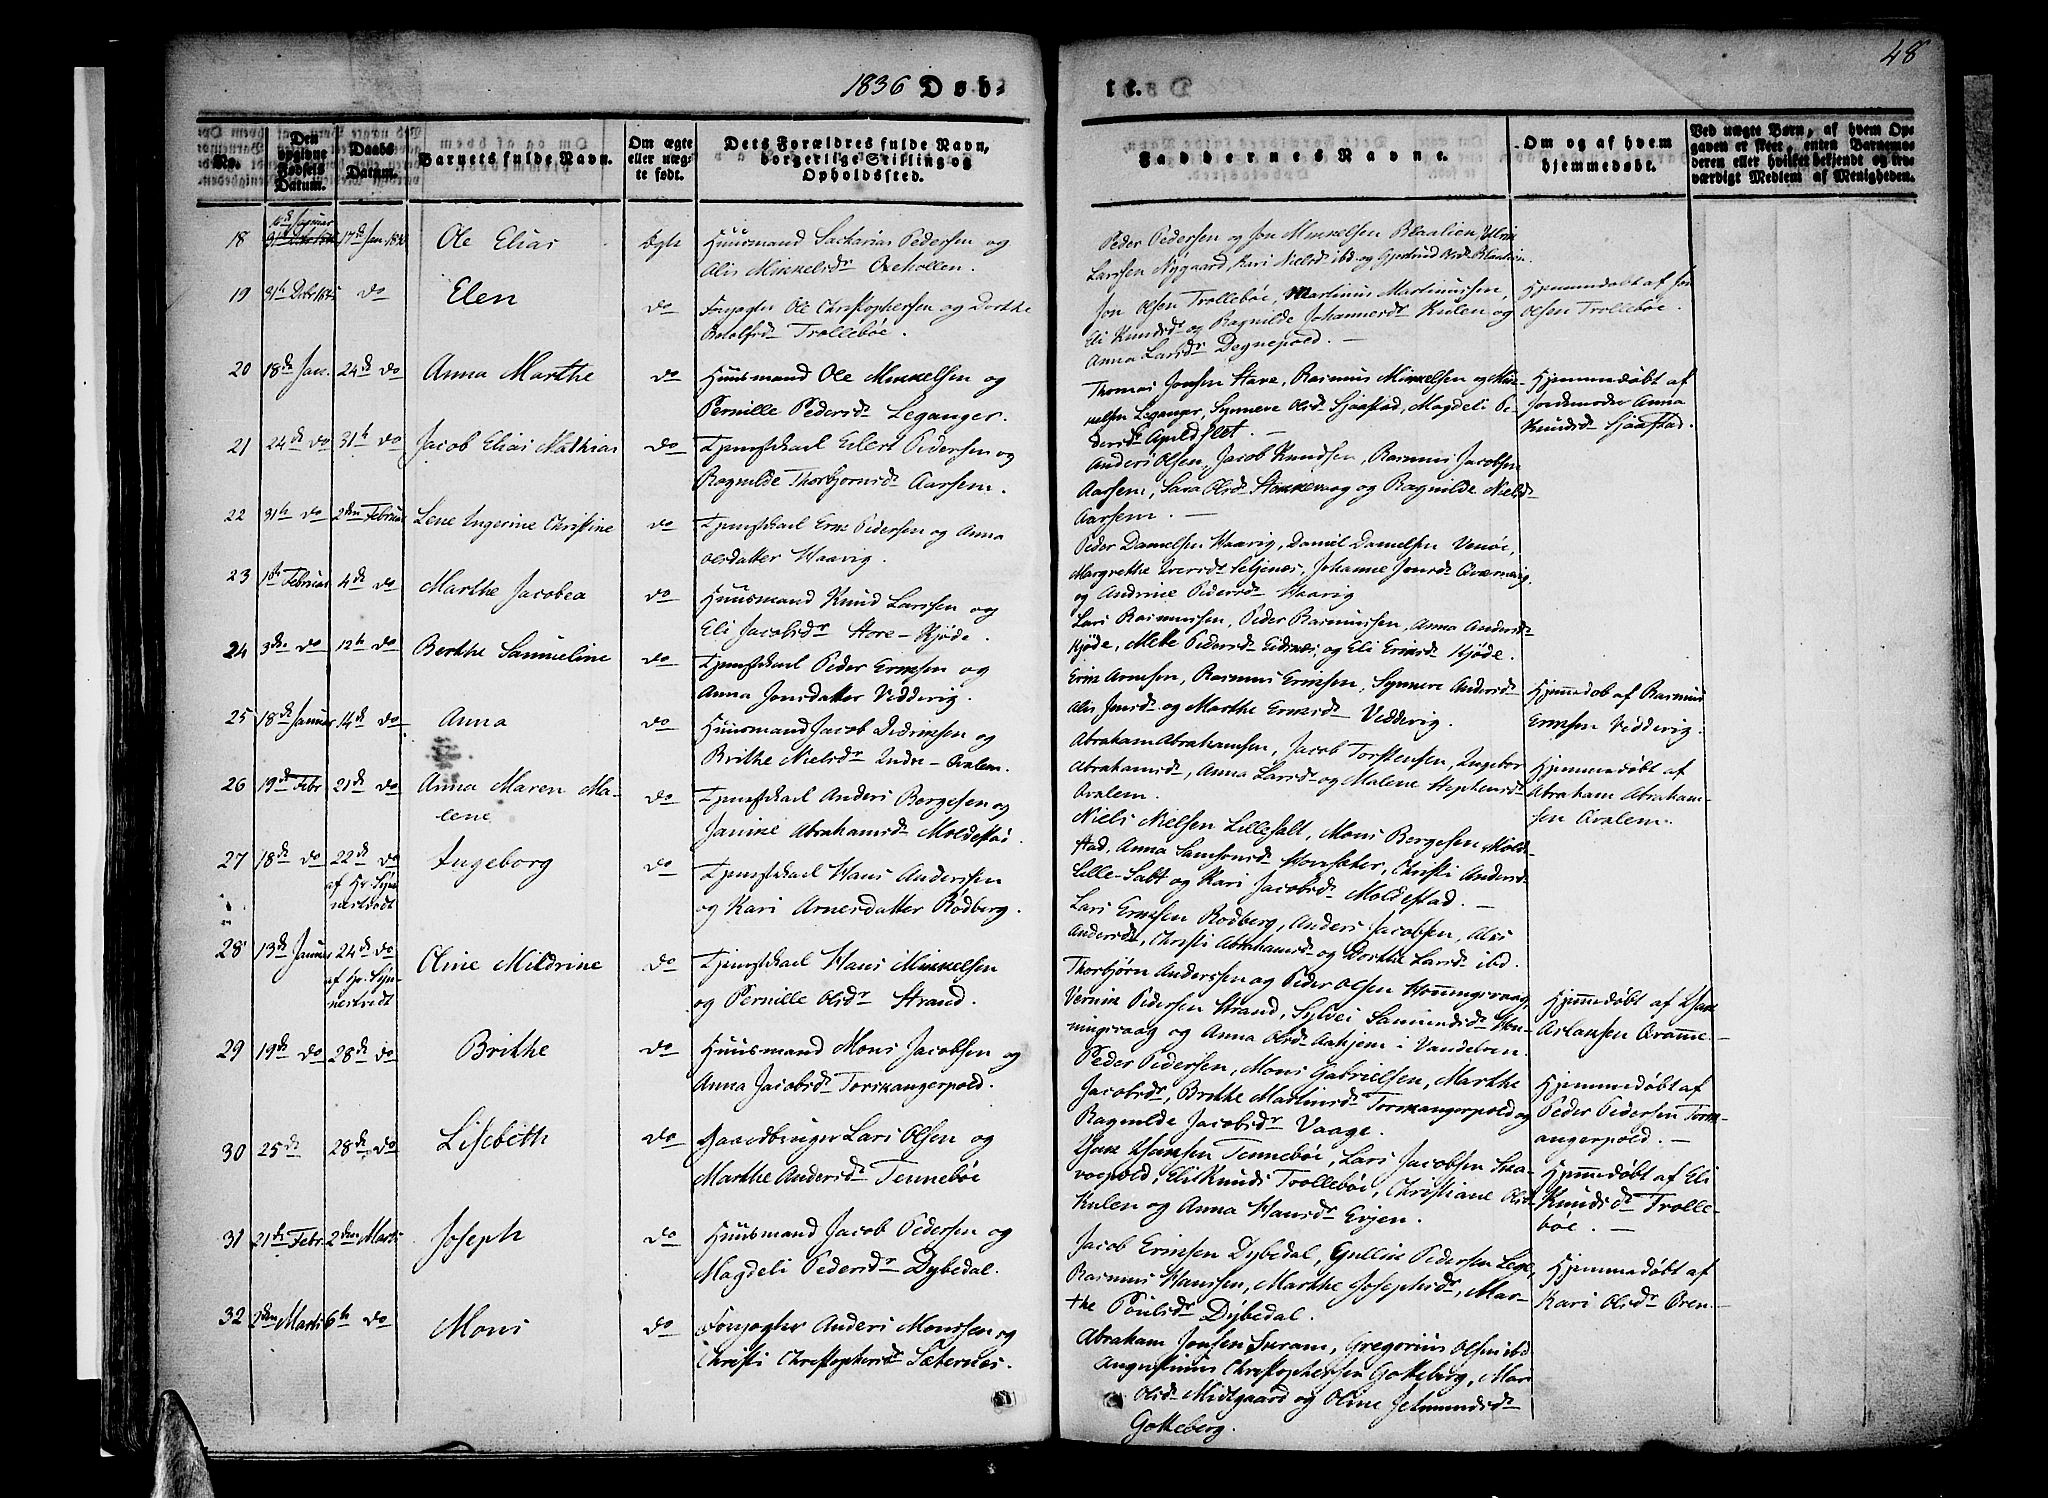 48
1836 Döb-
te.
No.
Den
opgivne
Fødsels
Datum.
Daabs
Datum.
Barnets fulde Navn.
Om ægte
eller uæg-
te født.
Dets Forældres fulde Navn,
borgerlige Stilling og
Opholdssted.
Faddernes Navne.
Om og af hvem
hjemmedøbt.
Ved uægte Børn, af hvem Op-
gaven er skeet, enten Barnemo-
deren eller hvilket bekjendt og tro-
værdigt Medlem af Menigheden.
18 17de Jan Ole Elias Ægte Huusmand Sacharias Pedersen og
Alis Mikkelsdr Oxehollen.
Peder Pedersen og Jon Mikkelsen
Larssen Nygaard, Kari Nielsdr ibd og
19 31te do Elen do Ole Christophersen og Dorthe
Trollebøe.
Jon Olsen Trollebøe, Martinus Martinussen,
Eli Knudsdr og Ragnilde Johannesdr Kulen og
Anna Larsdr Degnepold. —
Hjemmedøbt af Jon
Olsen Trollebøe.
20 18de Jan. 24de do Anna Marthe do Huusmand Ole Mikkelsen og
Pernille Pedersdr Leganger.
Thomas Jonsen Stave, Rasmus Mikkelsen og Mik-
kelsen Leganger, Synneve Olsdr Sjaastad, Magdeli Pe-
dersdr —
Hjemmedøbt af
Jordemoder Anna
Knudsdr Sjaastad.
21 24de do 31te do Jacob Elias Mathias do Eilert Pedersen og
Ragnilde Thorbjørnsdr Aarsem.
Anders Olsen, Jacob Knudsen, Rasmus Jacobsen
Aarsem, Sara Olsdr og Ragnilde Nielsdr
Aarsem. —
22 31te do 2den Februar Lene Ingerine Christine do Erik Pedersen og Anna
Olsdatter Haavig.
Peder Danielsen Haavig, Daniel Danielsen
Margrethe Iversdr Seljenes, Johanne Jonsdr
og Andrine Pedersdr Haavig
23 1ste Februar 4de do Marthe Jacobea do Huusmand Knud Larssen og
Eli Jacobsdr Store-Kjøde.
Lars Rasmussen, Peder Rasmussen, Anna Andersdr
Kjøde, Mette Pedersdr Eidsnæs, og Eli Eriksdr Kjøde.
24 3die do 12te do Berthe Samueline do Peder Eriksen og
Anna Jonsdatter Vedderig.
Erik Arnesen, Rasmus Eriksen, Synneve Andersdr
Alis Jonsdr og Marthe Eriksdr Vedderig.
Hjemmedøb af Rasmus
Eriksen Vedderig.
25 18de Januar 14de do Anna do Huusmand Jacob Didriksen og
Brithe Nielsdr Indre-Qvalem.
Abraham Abrahamsen, Jacob Torstensen, Ingebor
Abrahamsdr, Anna Larsdr og Malene Stephensdr
Qvalem.
Hjemmedøbt af
Abraham Abraham-
sen Qvalem.
26 19de Febr 21de do Anna Maren Ma-
lene do Anders Børgesen og
Janike Abrahamsdr Moldestad.
Niels Nielsen Lillesalt, Mons Børgesen Molde-
stad, Anna Samsonsdr Honsæter, Christi Andersdr
Lille-Salt og Kari Jacobsdr Moldestad. —
27 18de do 22de do
af Hr Syn-
nestvedt Ingeborg do Hans Anderssen
og Kari Arnesdatter Rødberg.
Lars Eriksen Rødberg, Anders Jacobsen, Alis
Andersdr, Christi Abrahamsdr og Dorthe Larsdr ibd.
28 13de Januar 24de do
af Hr. Syn-
nestvedt Oline Mildrine do Hans Mikkelsen
og Pernille Olsdr Strand.
Thorbjørn Anderssen og Peder Olsen Honningsvaag,
Pedersen Strand, Sylvei Samundsdr Hon-
ningsvaag og Anna Olsdr Aahjem i Vandelven.
Hjemmedøbt af
29 19de do 28de do Brithe do Huusmand Mons Jacobsen og
Anna Jacobsdr Torskangerpold.
Peder Pedersen, Mons Gabrielsen, Marthe
Jacobsdr, Brithe Martinsdr Torskangerpold og
Ragnilde Jacobsdr Vaage.
Hjemmedøbt af
Peder Pedersen Torsk-
angerpold. —
30 25de 28de do Lisebeth do Gaardbruger Lars Olsen og
Marthe Andersdr Tennebøe
Tennebøe, Lars Jacobsen
Eli Knuds Trollebøe, Christiane Olsdr
Kulen og Anna Hansdr Evjen.
Hjemmedøbt af Eli
Knudsdr Trolle-
bøe. —
31 21de Febr. 2den Marts Joseph do Huusmand Jacob Pedersen og
Magdeli Pedersdr Dybedal.
Jacob Eriksen Dybedal, Gullik Pedersen
Rasmus Hanssen, Marthe Josephsdr, Mar-
the Poulsdr Dybedal.
Hjemmedøbt af
Kari Olsdr
32 2den Marts 6te do Mons do Anders Monssen og
Christi Christophersdr Sæternes.
Abraham Jonsen Gregorius Olsen ibd
Augustinus Christophersen Gotteberg, Mari
Olsdr Midtgaard og Oline Jetmundsdr
Gotteberg.